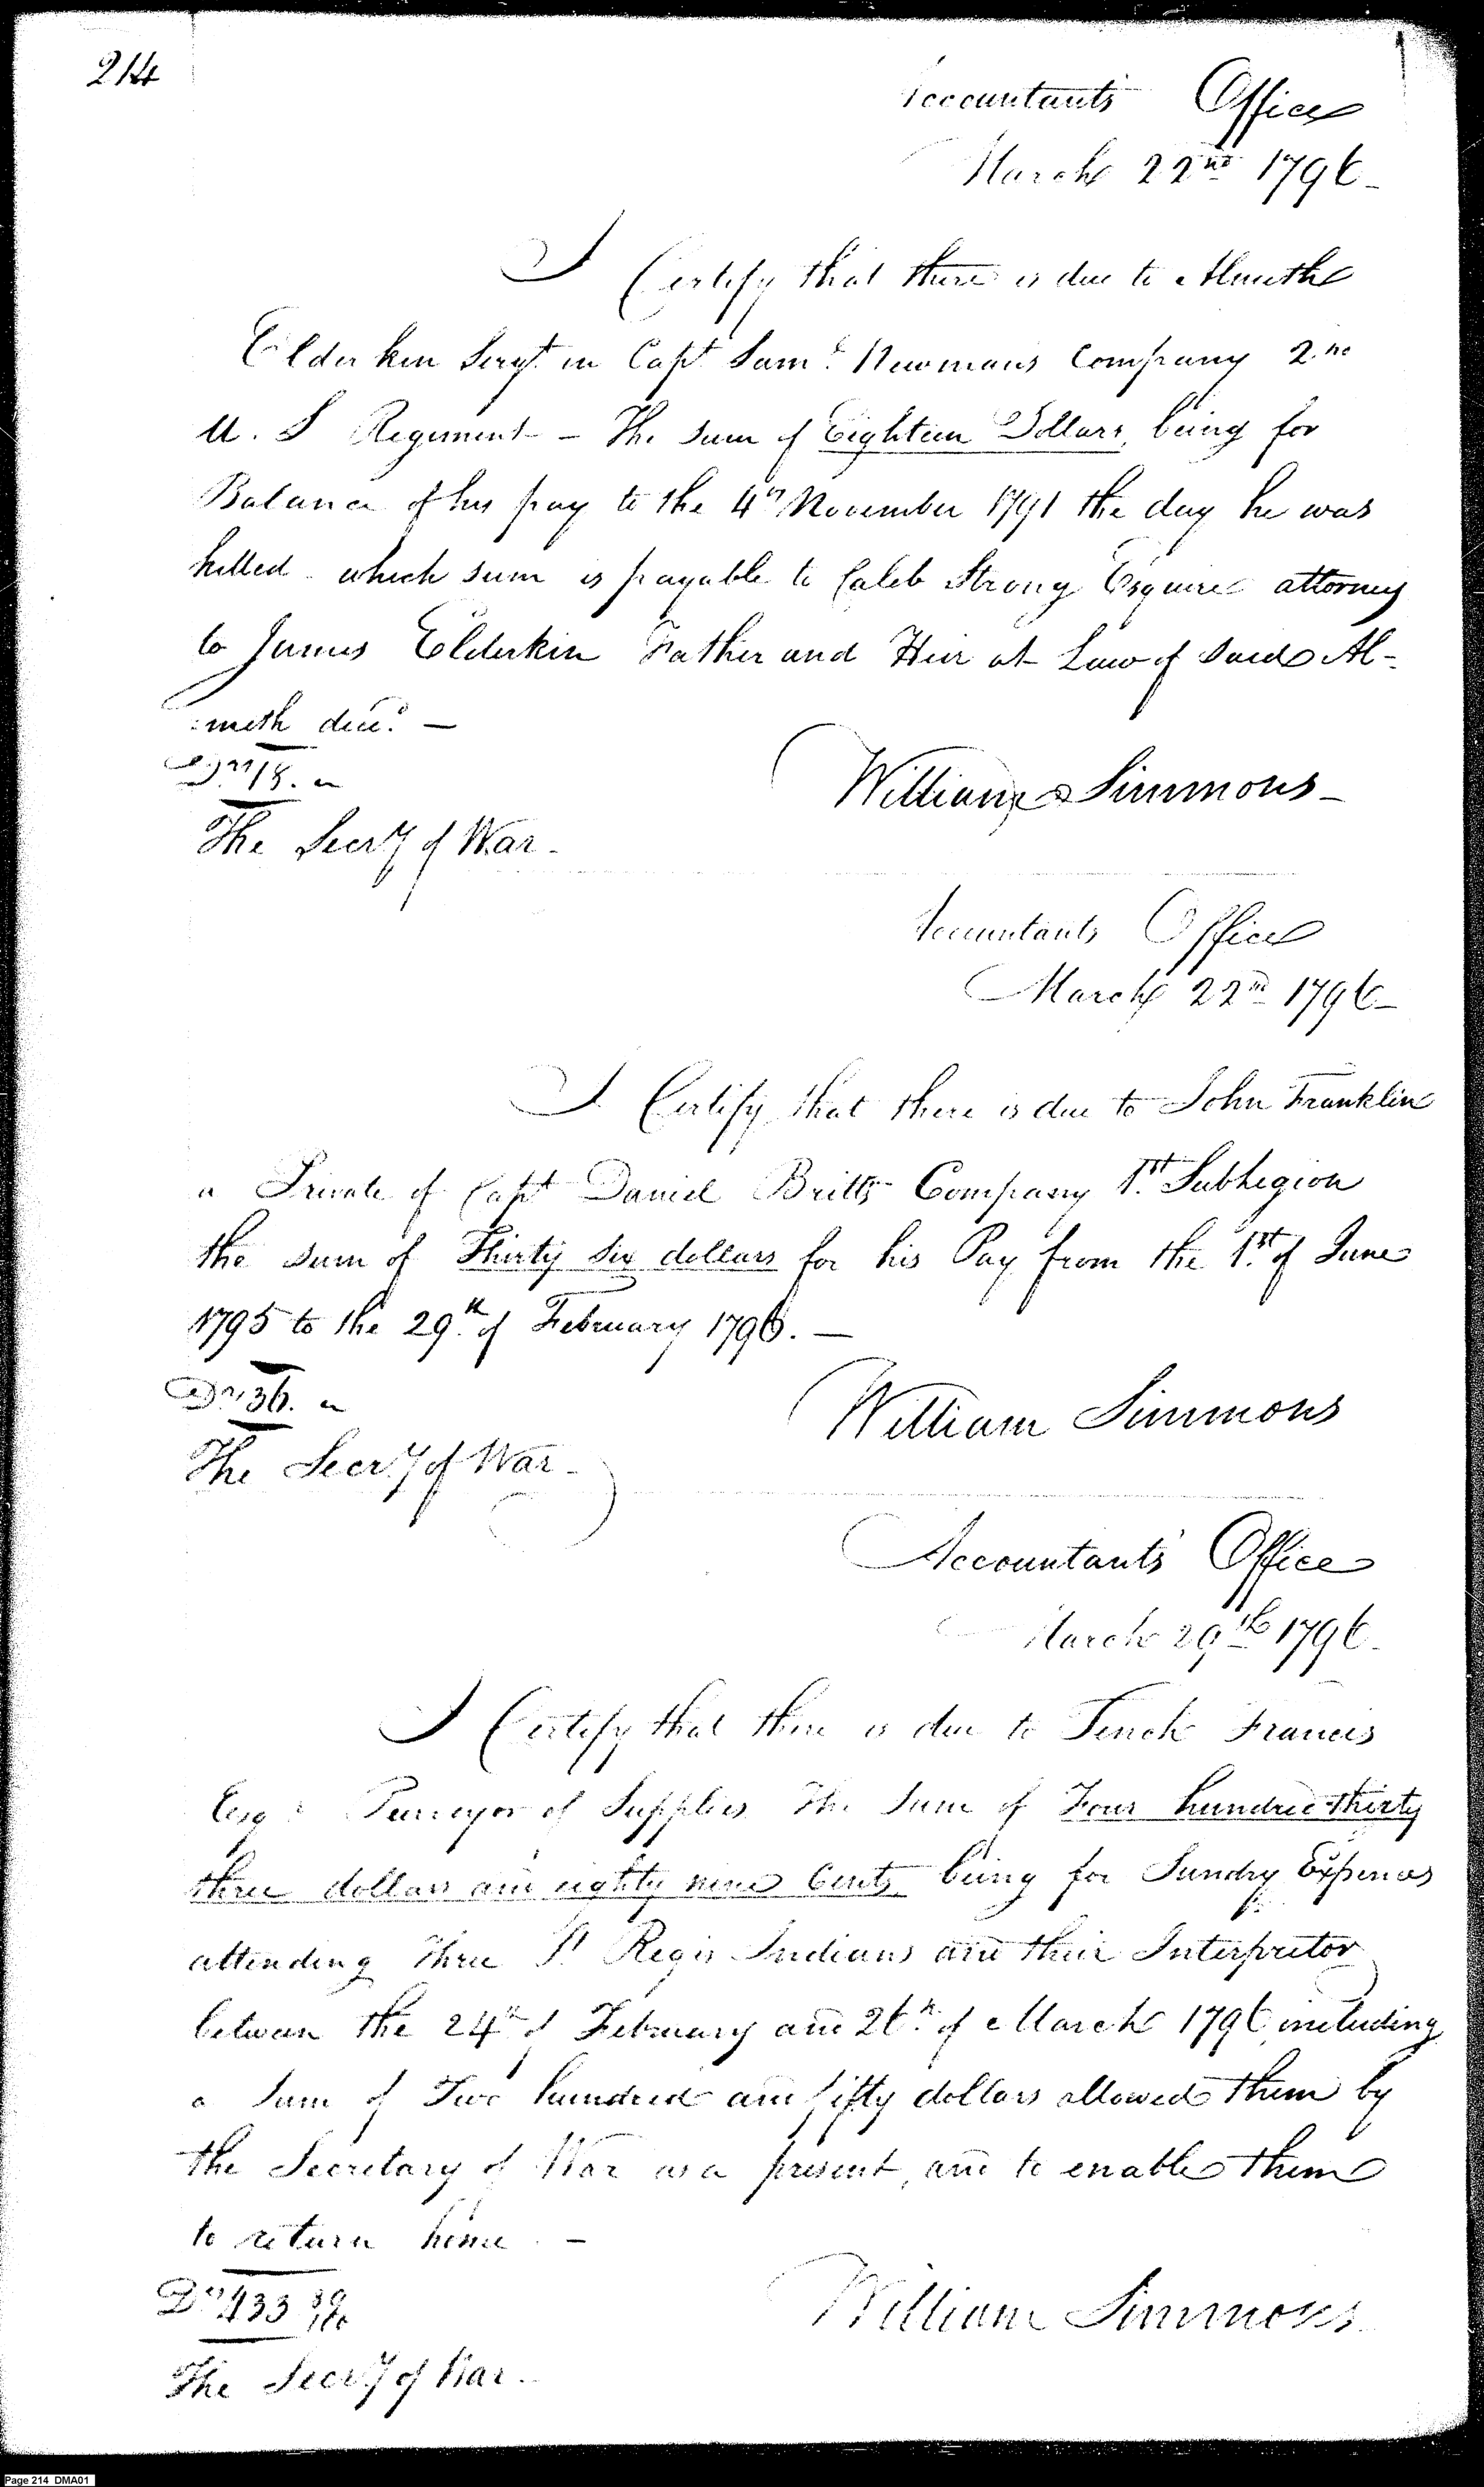 214
Accountants Office
March 22nd 1796-
I Certify that there is due to Almeth
Elderken Sergt. in Capt Saml. Newmans Company 2.nd
U. S Regiment - The sum of Eighteen Dollars, being for
Balance of his pay to the 4th November 1791 the day he was
killed - which sum is payable to Caleb Strong Esquire attorney
to James Elderkin Father and Heir at Law of said Al-
:meth decd. -
Drs 18. "
William Simmons -
The Secry of War -
Accountants Office
March 22nd 1796-
I Certify that there is due to John Franklin
a Private of Capt Daniel Britts Company 1st. Sublegion
the sum of Thirty Six dollars for his Pay from the 1st. of June
1795 to the 29.th of February 1796. -
Drs 36. "
William Simmons
The Secry of War -
Accountants Office
March 29th 1796.
I Certify that there is due to Tench Francis
Esqr. Purveyor of Supplies The Sum of Four hundred thirty
three dollars and eighty nine Cents, being for Sundry Expences
attending Three St Regis Indians and their Interpretor
between the 24th of February and 26th. of March 1796 including
a Sum of Two hundred and fifty dollars allowed them by
the Secretary of War as a present, and to enable them
to return home. -
Drs 433 89/100
William Simmons.
The Secry of War -
Page 214 DMA01